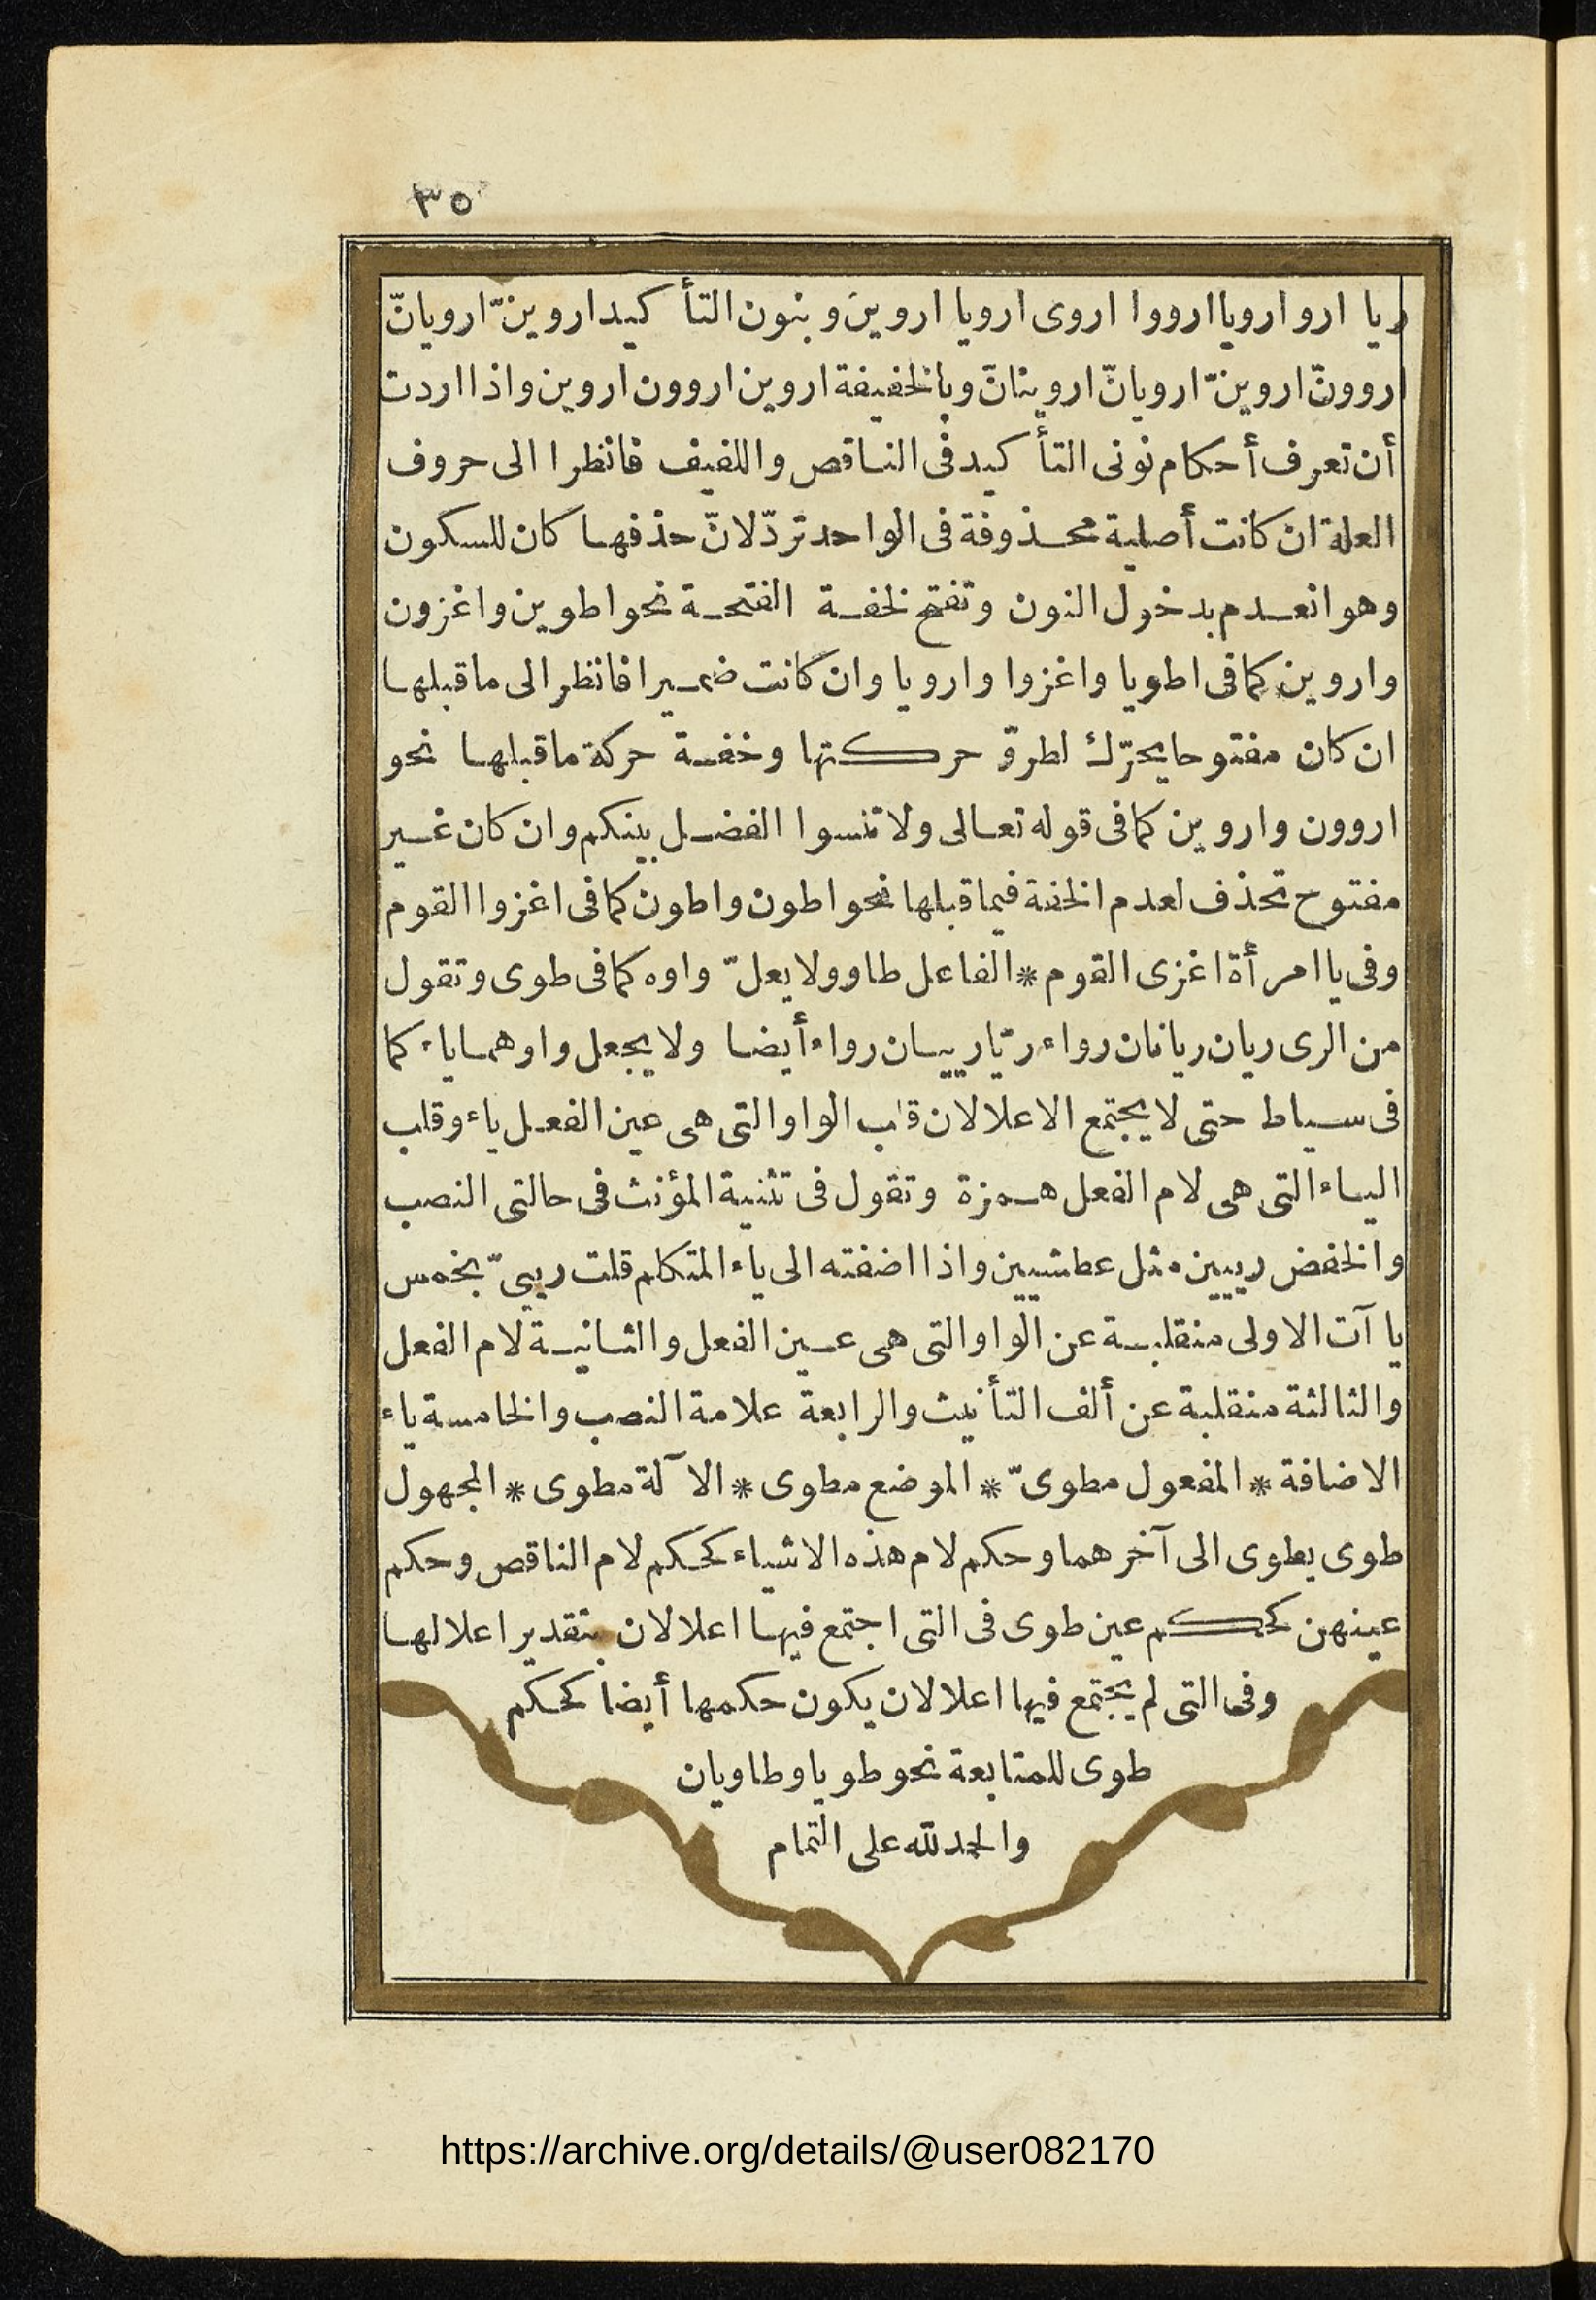 ٣٥
ريا ارو ارويا ارووا اروى ارويا اروين وبنون التأكيد اروينّ ارويانّ
اروونّ اروينّ ارويانّ اروينانّ وبالخفيفة اروين اروون اروين واذا اردت
أن تعرف أحكام نونى التأكيد فى الناقص واللفيف فانظر الى حروف
العلة ان كانت أصلية محذوفة فى الواحد تردّ لانّ حذفها كان للسكون
وهو انعدم بدخول النون وتفتح لخفة الفتحة نحو اطوين واغزون
واروين كما فى اطويا واغزوا وارويا وان كانت ضميرا فانظر الى ما قبلها
ان كان مفتوحا يحرّك لطروّ حركتها وخفة حركة ما قبلها نحو
اروون واروين كما فى قوله تعالى ولا تنسوا الفضل بينكم وان كان غير
مفتوح تحذف لعدم الخفة فيما قبلها نحو اطون واطون كما فى اغزوا القوم
وفى يا امرأة اغزى القوم * الفاعل طاو ولا يعلّ واوه كما فى طوى وتقول
من الرى ريان ريانان رواء ريّا رييان رواء أيضا ولا يجعل واوهما ياء كما
فى سياط حتى لا يجتمع الاعلالان قلب الواو التى هى عين الفعل ياء وقلب
الياء التى هى لام الفعل همزة وتقول فى تثنية المؤنث فى حالتى النصب
والخفض رييين مثل عطشيين واذا اضفته الى ياء المتكلم قلت رييىّ بخمس
يا آت الاولى منقلبة عن الواو التى هى عين الفعل والثانية لام الفعل
والثالثة منقلبة عن ألف التأنيث والرابعة علامة النصب والخامسة ياء
الاضافة * المفعول مطوىّ * الموضع مطوى * الآلة مطوى * المجهول
طوى يطوى الى آخرهما وحكم لام هذه الاشياء كحكم لام الناقص وحكم
عينهن كحكم عين طوى فى التى اجتمع فيها اعلالان بتقدير اعلالها
وفى التى لم يجتمع فيها اعلالان يكون حكمها أيضا كحكم
طوى للمتابعة نحو طويا وطاويان
والحمد لله على التمام
https://archive.org/details/@user082170